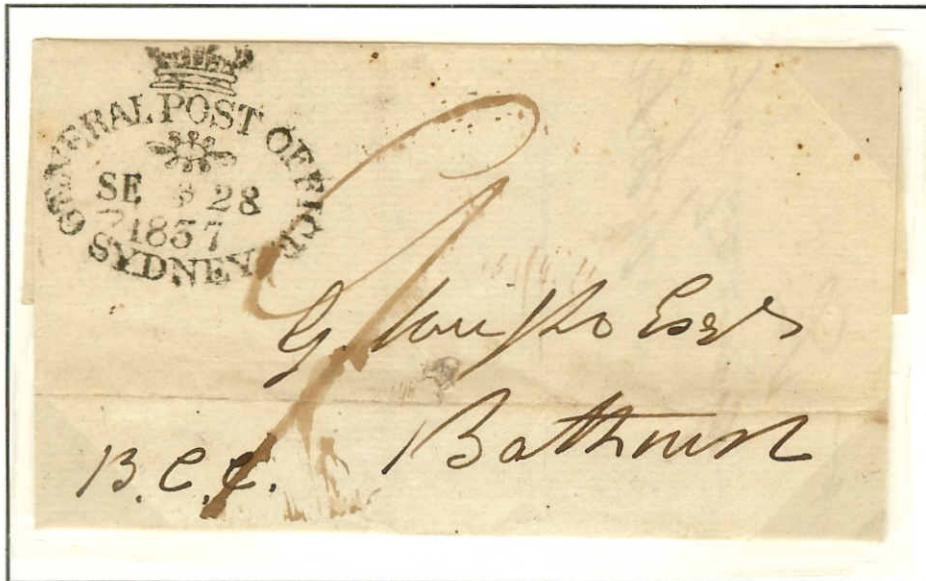 GENERAL POST OFFICE
SE 28
1837
SYDNEY
G. Esqr
Bathurst
B.C.C.